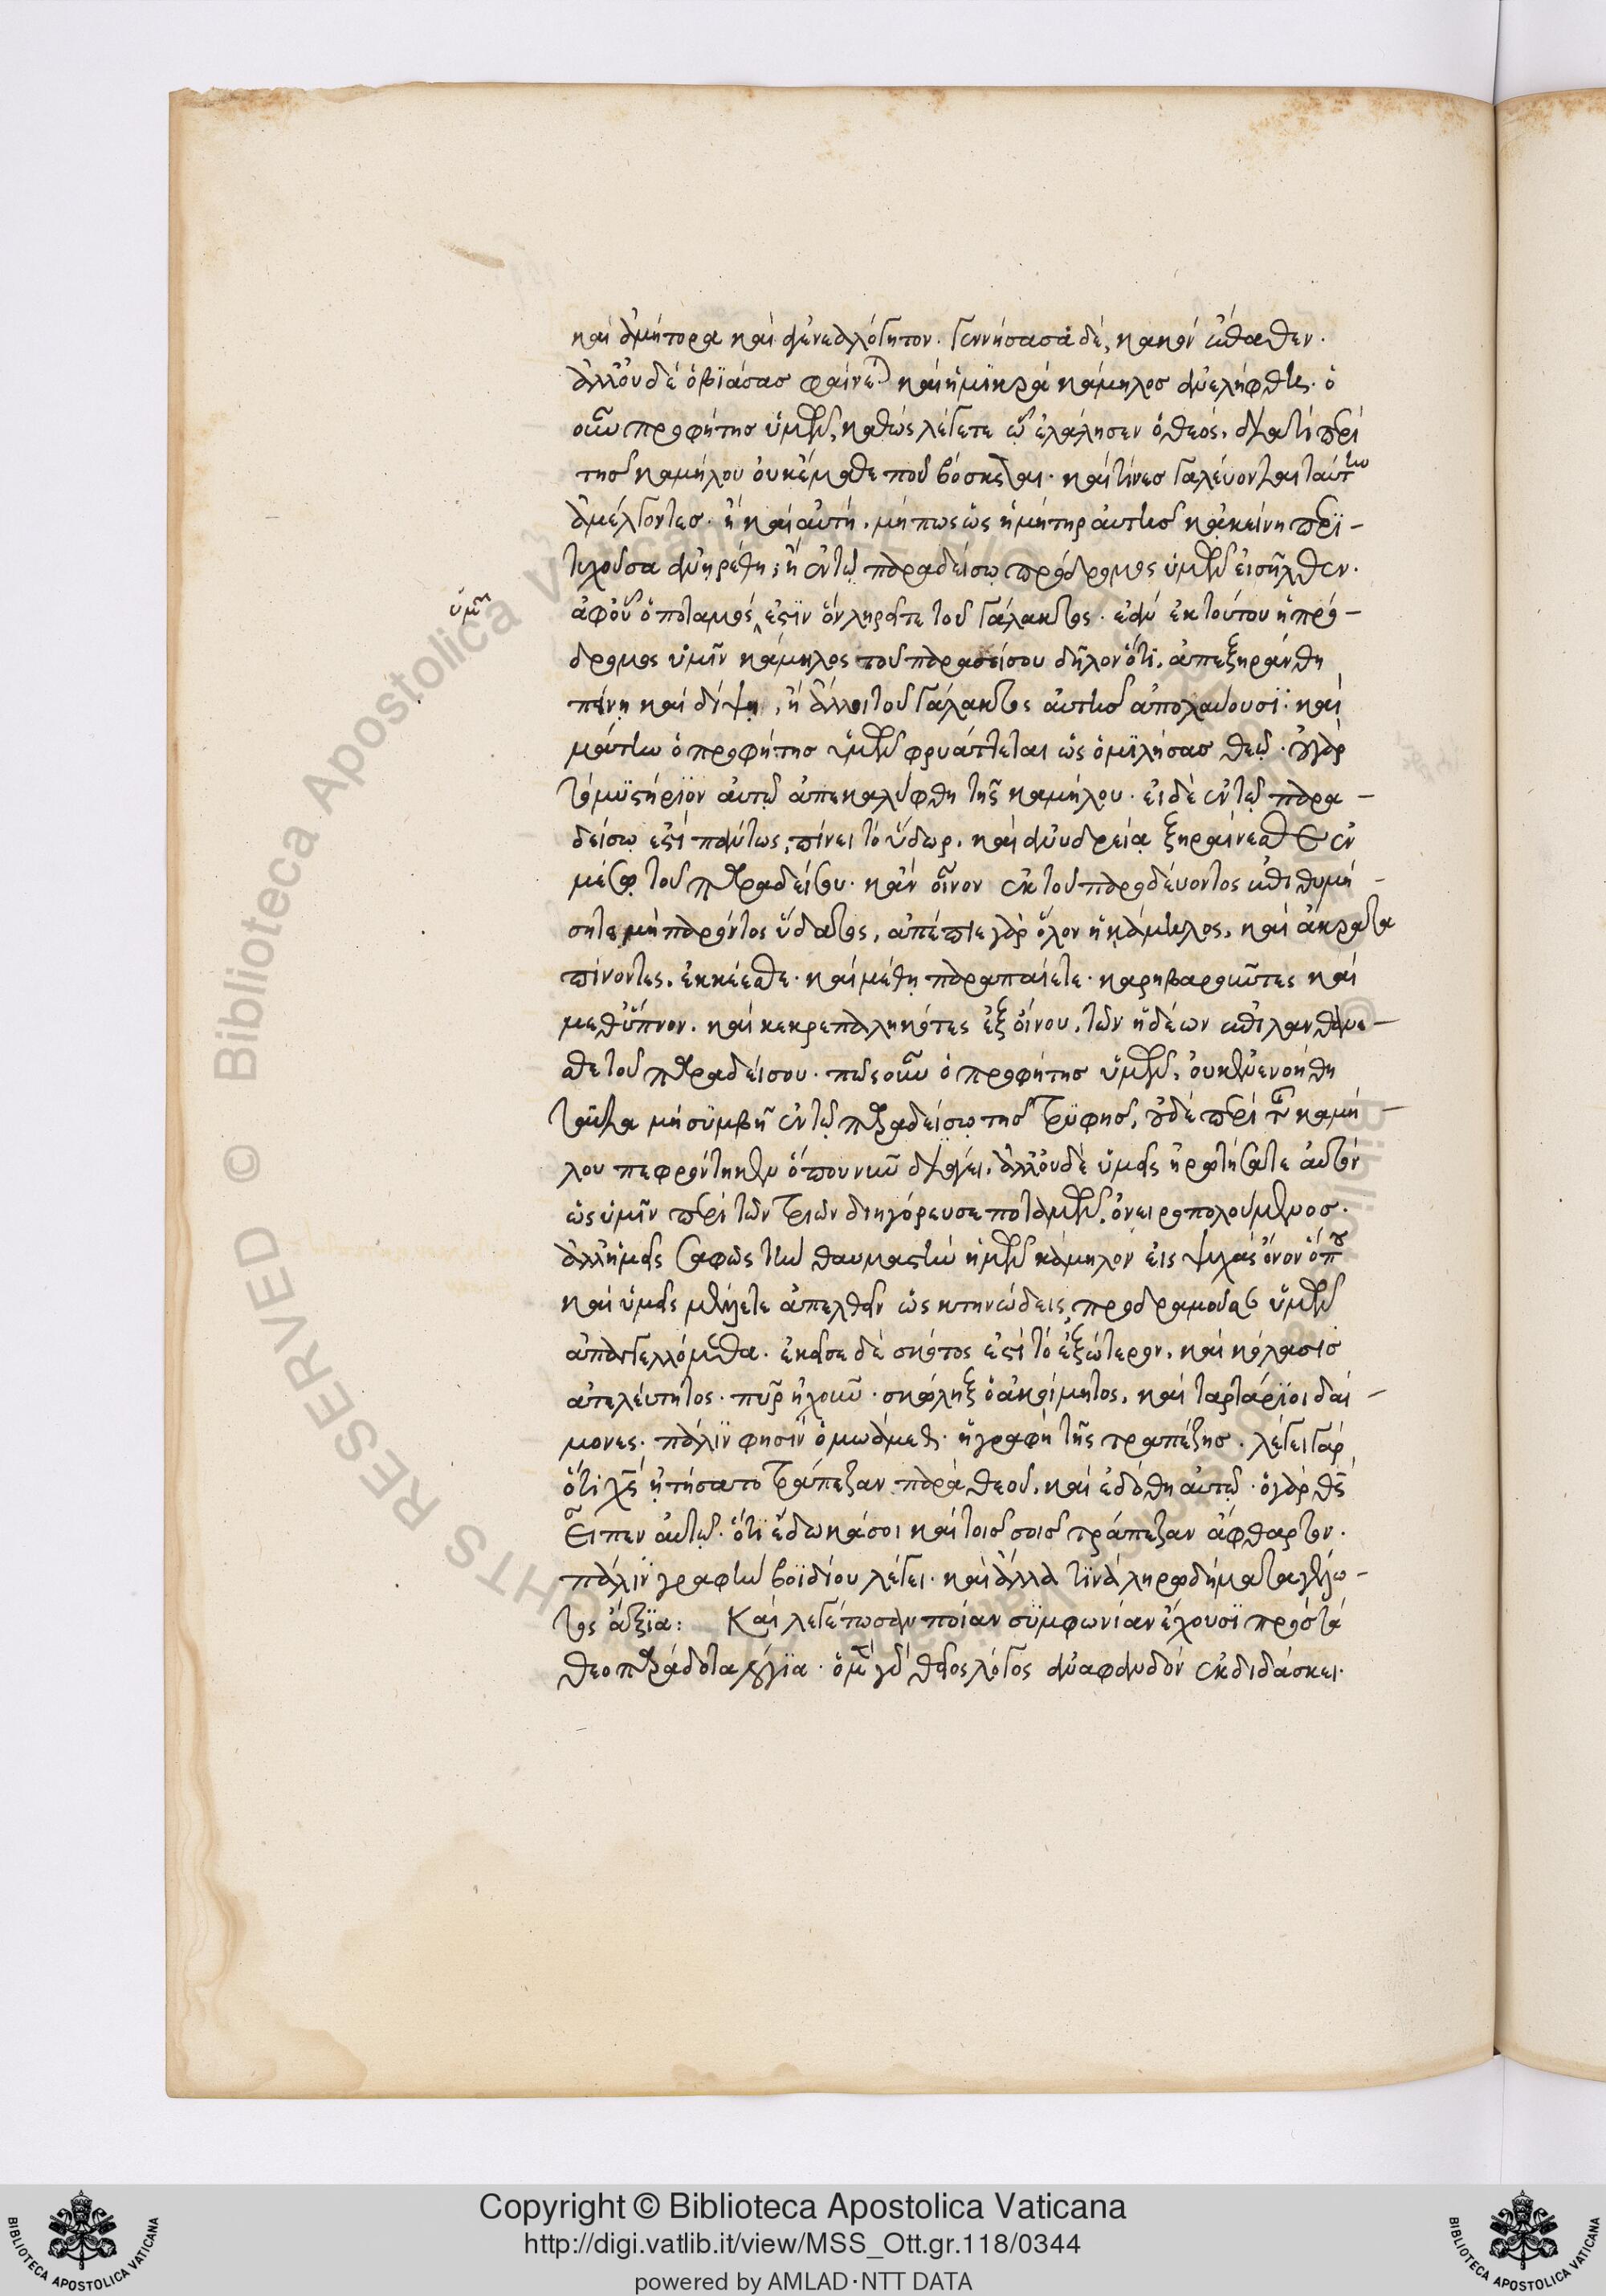 καὶ ἀμήτορα καὶ ἀγενεαλόγητον. γεννήσασα δὲ, κακὸν ἔπαθεν.
ἀλλ' οὐδὲ ὁ βιάσας φαίνεται καὶ ἡ μικρὰ κάμηλος ἀνελήφθη. ὁ
οὖν προφήτης ὑμῶν, καθὼς λέγετε ᾧ ἐλάλησεν ὁ θεός, διατί περὶ
τῆς καμήλου οὐκ ἔμαθε ποῦ βόσκεται. καὶ τίνες γαλεύονται ταύτην
ἀμέλγοντες. ἢ καὶ αὐτὴ, μήπως ὡς ἡ μήτηρ αὐτῆς κἀκείνη περι-
τυχοῦσα ἀνῃρέθη; ἢ ἐν τῷ παραδείσῳ πρόδρομος ὑμῶν εἰσῆλθεν.
ὑμῖν
ἀφ' οὗ ὁ ποταμός ἐστιν ὃν ληρᾶτε τοῦ γάλακτος. ἐὰν ἐκ τούτου ἡ πρό-
δρομος ὑμῖν κάμηλος τοῦ παραδείσου δῆλον ὅτι, ἀπεξηράνθη
πείνῃ καὶ δίψῃ, ἢ ἄλλοι τοῦ γάλακτος αὐτῆς ἀπολαύουσι. καὶ
μάτην ὁ προφήτης ὑμῶν φρυάττεται ὡς ὁμιλήσας θεῷ. οὐ γὰρ
τὸ μυστήριον αὐτῷ ἀπεκαλύφθη τῆς καμήλου. εἰ δὲ ἐν τῷ παρα-
δείσῳ ἐστὶ πάντως, πίνει τὸ ὕδωρ, καὶ ἀνυδρείᾳ ξηραίνεσθε ἐν
μέσῳ τοῦ παραδείσου. κἂν οἶνον ἐκ τοῦ παροδεύοντος ἐπιθυμή-
σητε μὴ παρόντος ὕδατος, ἀπέπιε γὰρ ὅλον ἡ κάμηλος, καὶ ἄκρατα
πίνοντες, ἐκκέεσθε. καὶ μέθῃ παραπαίετε. καρηβαροῦντες καὶ
μεθ' ὕπνον. καὶ κεκρεπαληκότες ἐξ οἴνου, τῶν ἡδέων ἐπιλανθάνε-
σθε τοῦ παραδείσου. πῶς οὖν ὁ προφήτης ὑμῶν, οὐκ ἐνενοήθη
ταῦτα μὴ συμβῇ ἐν τῷ παραδείσῳ τῆς τρυφῆς, οὐδὲ περὶ τῆς καμή-
λου πεφρόντικεν ὅπου νῦν διάγει. ἀλλ' οὐδὲ ὑμᾶς ἠρωτήσατε αὐτὸν
ὡς ὑμῖν περὶ τῶν τριῶν διηγόρευσε ποταμῶν, ὀνειροπολούμενος.
ἀλλ' ἡμᾶς σαφῶς τὴν θαυμαστὴν ἡμῶν κάμηλον εἰς ψυχὰς ὄνον ὅπου
καὶ ὑμᾶς μέλλετε ἀπελθεῖν ὡς κτηνώδεις προδραμοῦσαν ὑμῶν
ἀπαγγελλόμεθα. ἐκεῖσε δὲ σκότος ἐστὶ τὸ ἐξώτερον, καὶ κόλασις
ἀτελεύτητος. πῦρ ἠχοῦν. σκώληξ ὁ ἀκοίμητος, καὶ ταρτάριοι δαί-
μονες. πάλιν φησὶν ὁ μωάμεθ. ἡ γραφὴ τῆς τραπέζης. λέγει γὰρ
ὅτι χς ᾐτήσατο τράπεζαν παρὰ θεοῦ, καὶ ἐδόθη αὐτῷ. ὁ γὰρ θς
Εἶπεν αὐτῷ. ὅτι ἔδωκά σοι καὶ τοῖς σοῖς τράπεζαν ἄφθαρτον.
πάλιν γραφὴν βοϊδίου λέγει. καὶ ἄλλα τινὰ ληρωδήματα γέλω-
τος ἄξια: Καὶ λεγέτωσαν ποίαν συμφωνίαν ἔχουσι πρὸς τὰ
θεοπαράδοτα λόγια. ὁ θεῖος λόγος ἀναφανδὸν ἐκδιδάσκει.
Copyright © Biblioteca Apostolica Vaticana
http://digi.vatlib.it/view/MSS_Ott.gr.118/0344
powered by AMLAD·NTT DATA